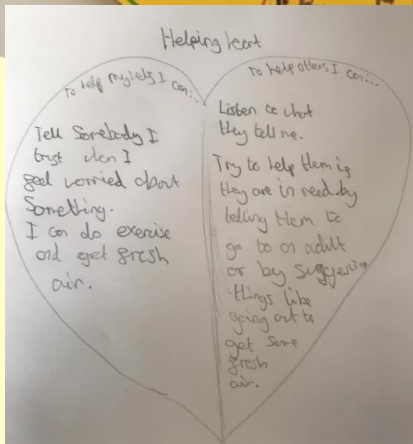 Helping heart
To help myself I can...
Tell somebody I
trust when I
feel worried about
Something.
I can do exercise
and get fresh
air.
To help others I can...
Listen to what
they tell me.
Try to help them if
they are in need by
telling them to
go to an adult
or by suggesting
things like
going out to
get some
fresh
air.